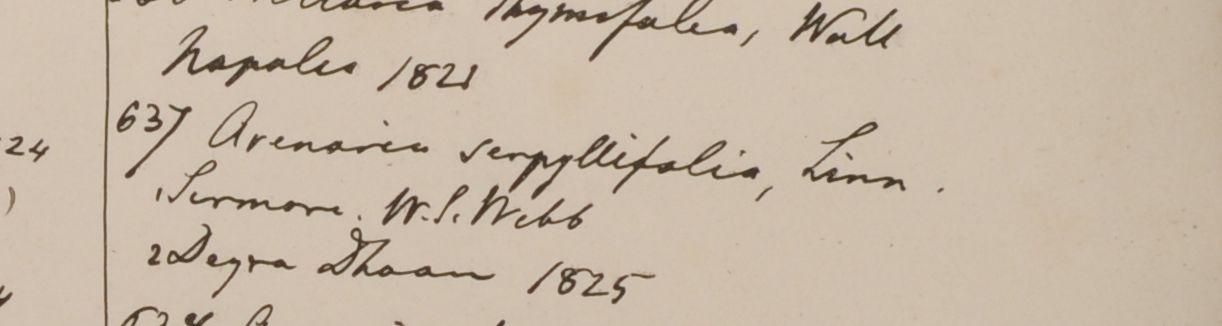 Thymifolia, Wall
Napalia 1821
24
637 Arenaria serpyllifolia, Linn.
)
1 Sirmore. W.S. Webb
2 Deyra Dhoon 1825